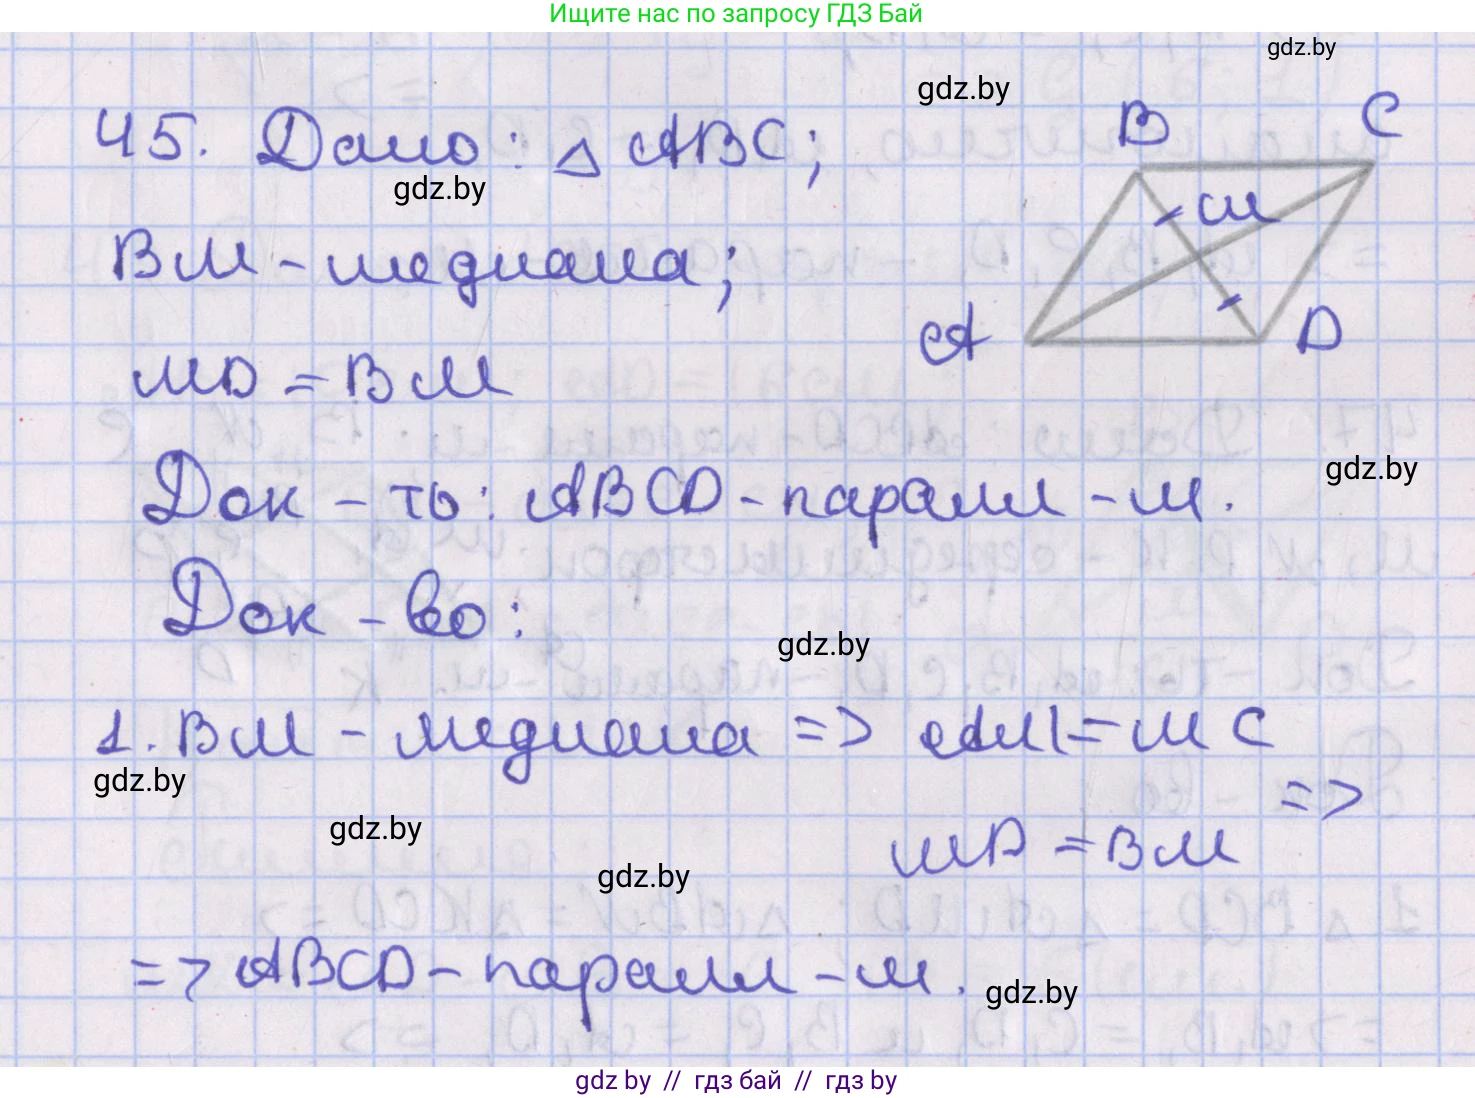 Ищите нас по запросу ГДЗ Бай
gdz.by
gdz.by
B C
45. Дано: △ ABC;
gdz.by
м
BM - медиана;
A D
MD = BM
gdz.by
Док - ть: ABCD - паралл - м.
Док - во:
gdz.by
1. BM - медиана => AM = MC
gdz.by
=>
gdz.by
MD = BM
gdz.by
=> ABCD - паралл - м.
gdz.by
gdz by // гдз бай // гдз by